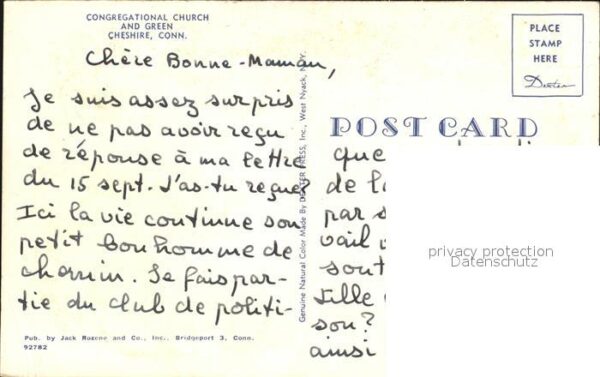 CONGREGATIONAL CHURCH
AND GREEN
CHESHIRE, CONN.
PLACE
STAMP
HERE
Dexter
Chère Bonne-Maman,
Je suis assez surpris
de ne pas avoir reçu
de réponse à ma lettre
du 15 sept. L'as-tu reçue?
Ici la vie continue son
petit bonhomme de
chemin. Je fais par-
tie du club de politi-
Genuine Natural Color Made By DEXTER PRESS, Inc., West Nyack, N.Y.
POST CARD
que
de
par
vail
sont
ville
son?
ainsi
privacy protection
Datenschutz
Pub. by Jack Rozene and Co., Inc., Bridgeport 3, Conn.
92782